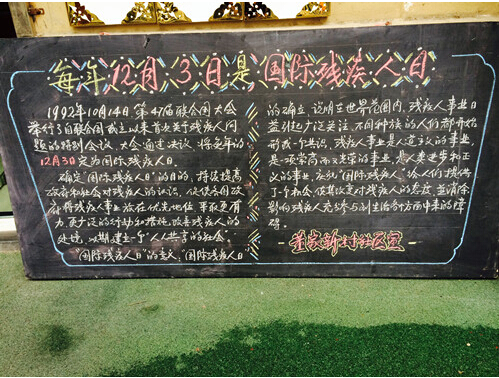 每年12月3日是国际残疾人日
1992年10月14日第47届联合国大会
举行了自联合国成立以来首次关于残疾人问
题的特别会议。大会通过决议,将每年的
12月3日定为国际残疾人日。
确定"国际残疾人日"的目的,持续提高
政府和社会对残疾人的认识,促使各国政
府将残疾人事业放在优先地位,采取更有
力、更广泛的行动和措施,改善残疾人的
处境,以期建立一个"人人共享的社会。
"国际残疾人日"的意义,"国际残疾人日
的确立,说明在世界范围内,残疾人事业日
益引起广泛关注,不同种族的人们都开始
形成一个共识,残疾人事业是人道主义的事业,
是一项崇高而光荣的事业,是人类进步和正
义的事业,庆祝"国际残疾人日",给人们提供
了一个机会,使其改变对残疾人的态度,並消除
影响残疾人充分参与到生活各方面中来的障
碍。
新村社区宣